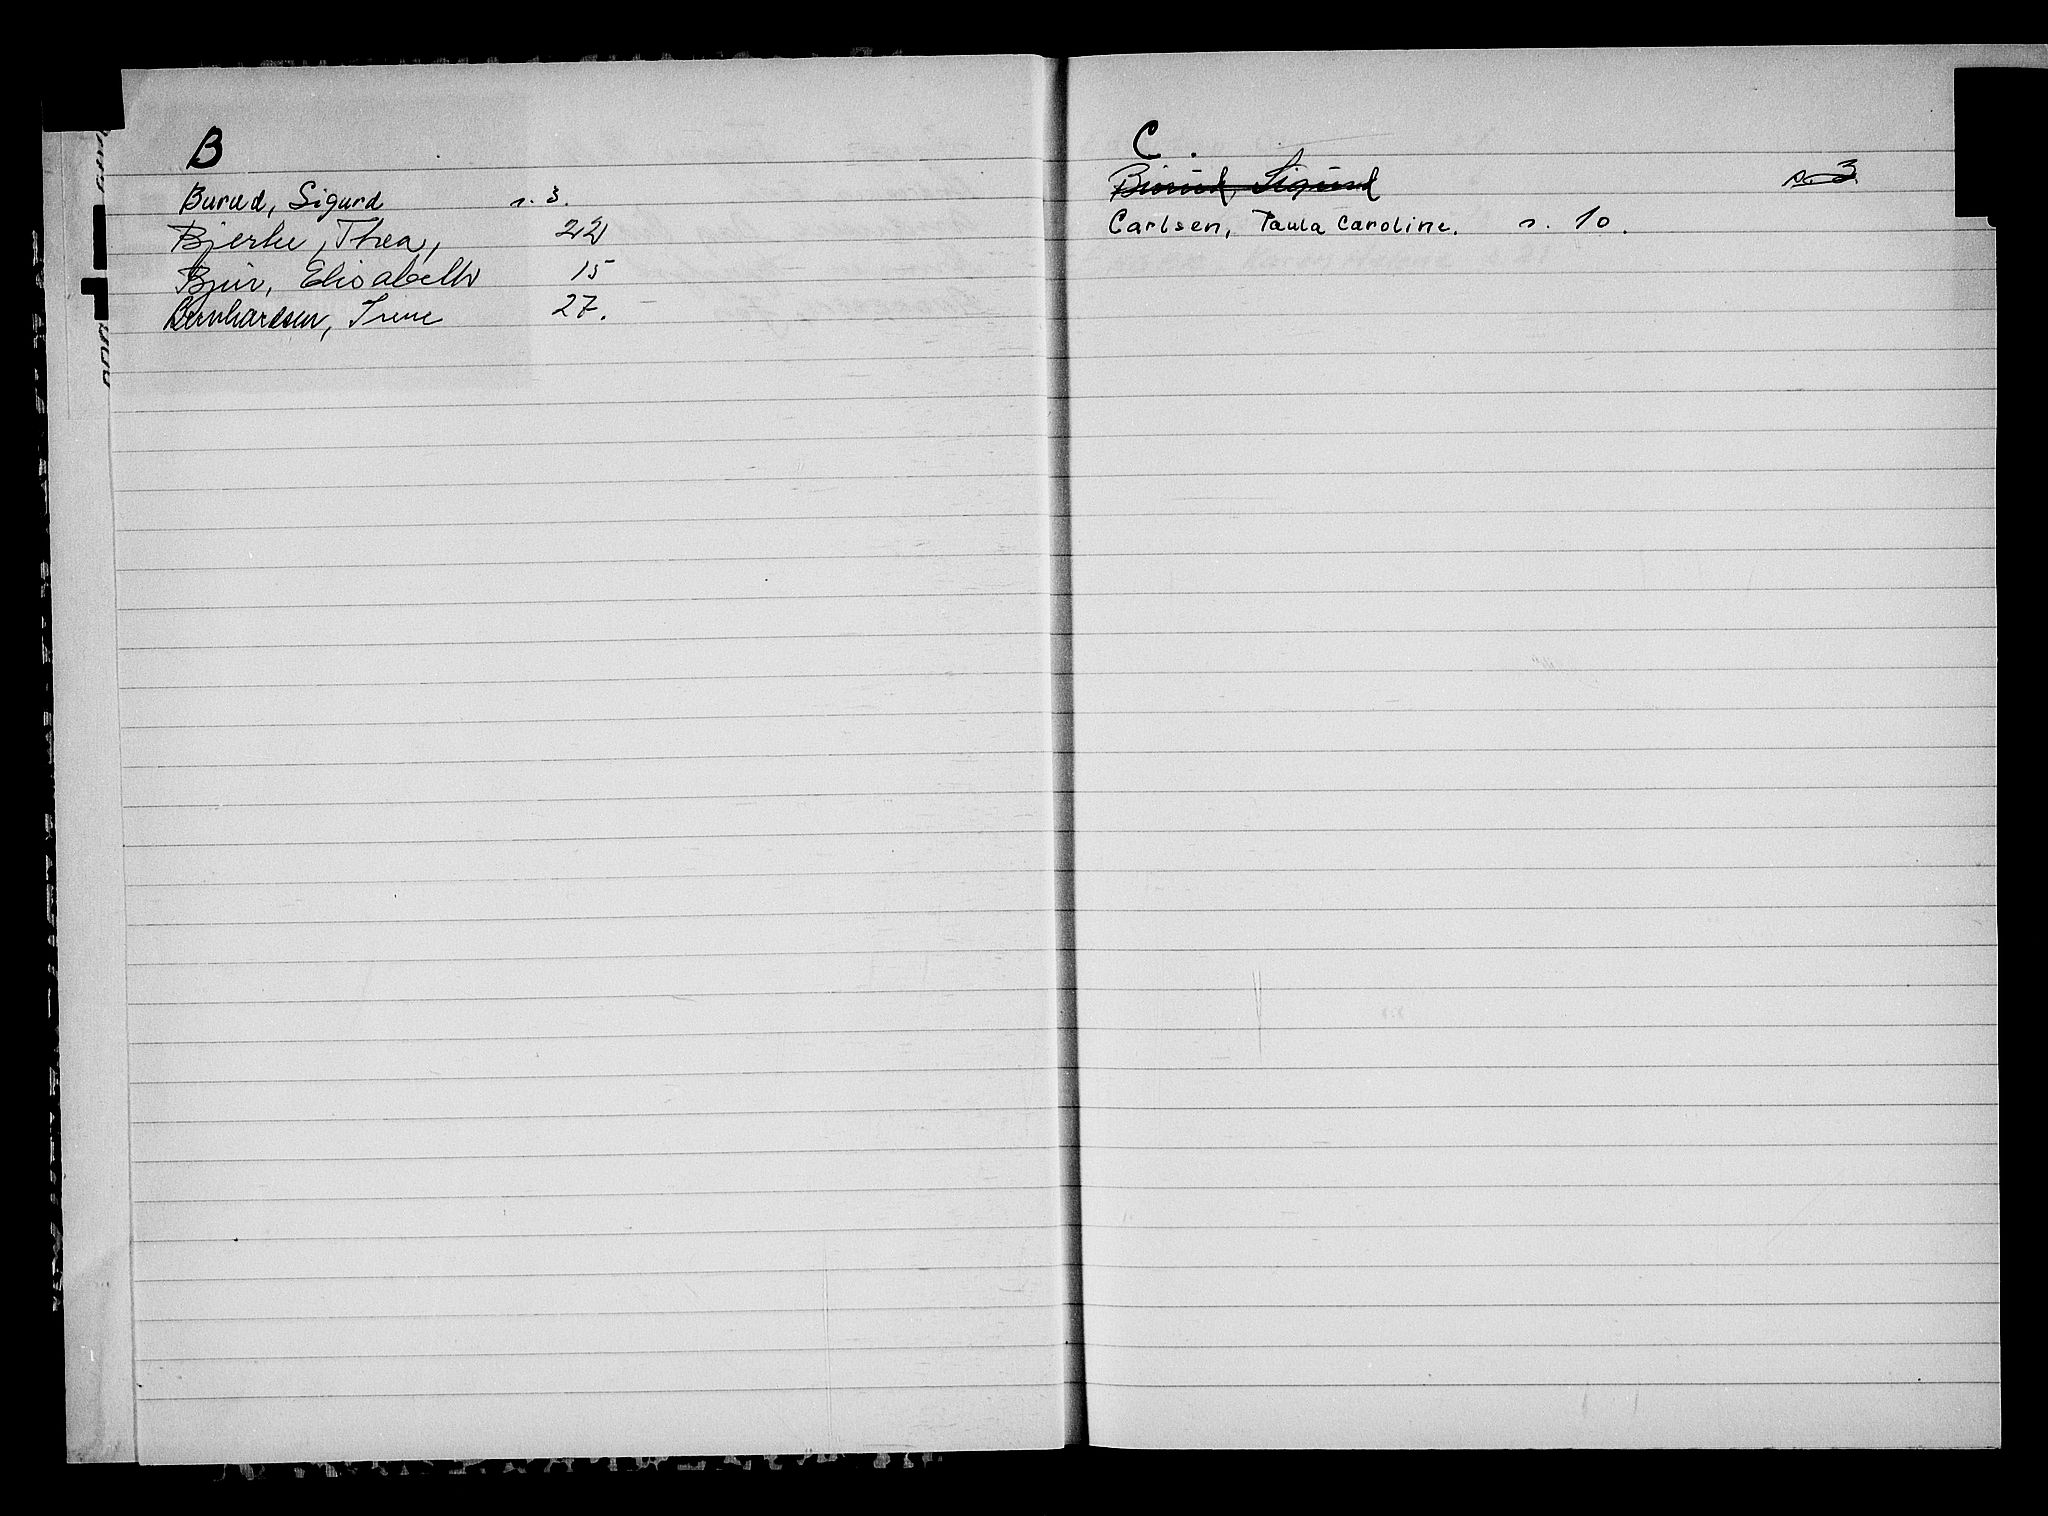 B
Burud, Sigurd s. 3.
Bjerke, Thea, 22
Bjur, Elisabeth 15
Bernhardsen, Irene 27.
C.
Burud, Sigurd s. 3.
Carlsen, Paula Caroline. s. 10.